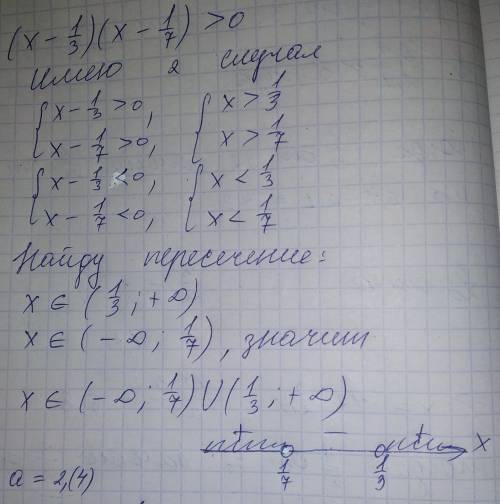 (x - 1/3)(x - 1/7) > 0
Имею 2 случая
{ x - 1/3 > 0, { x > 1/3
x - 1/7 > 0, x > 1/7
{ x - 1/3 < 0, { x < 1/3
x - 1/7 < 0, x < 1/7
Найду пересечение:
x ∈ (1/3; +∞)
x ∈ (-∞; 1/7), значит
x ∈ (-∞; 1/7) ∪ (1/3; +∞)
+ - + x
1/7 1/3
a = 2,(4)